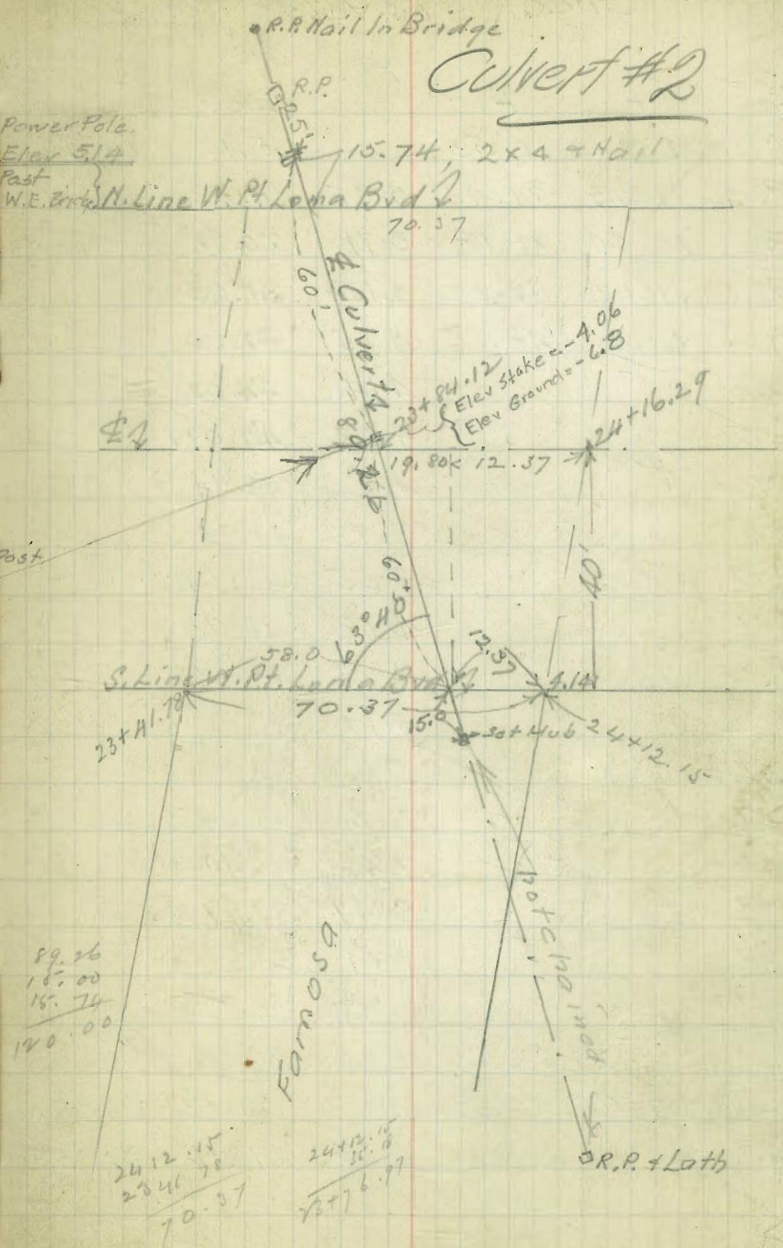 R.P. Nail In Bridge
Culvert #2
R.P.
25'
Power Pole.
Elev 5.14
Past
W.E. Bridg
15.74, 2 x 4 & Nail
N. Line W. Pt. Loma Bvd
70.37
60'
℄ Culvert
89.26
23+84.12
Elev Stake = -4.06
Elev Ground = -6.8
24+16.29
℄
19.80
12.37
Post
60'
40'
63° 45'
12.37
58.0
S. Line W. Pt. Loma Bvd
4.14
70.37
15.0
Set Hub
24+12.15
23+41.78
not chained
Famosa
89.26
15.00
15.74
120.00
2412.15
2341 78
70.37
24+12.15
23+76.97
R.P. & Lath